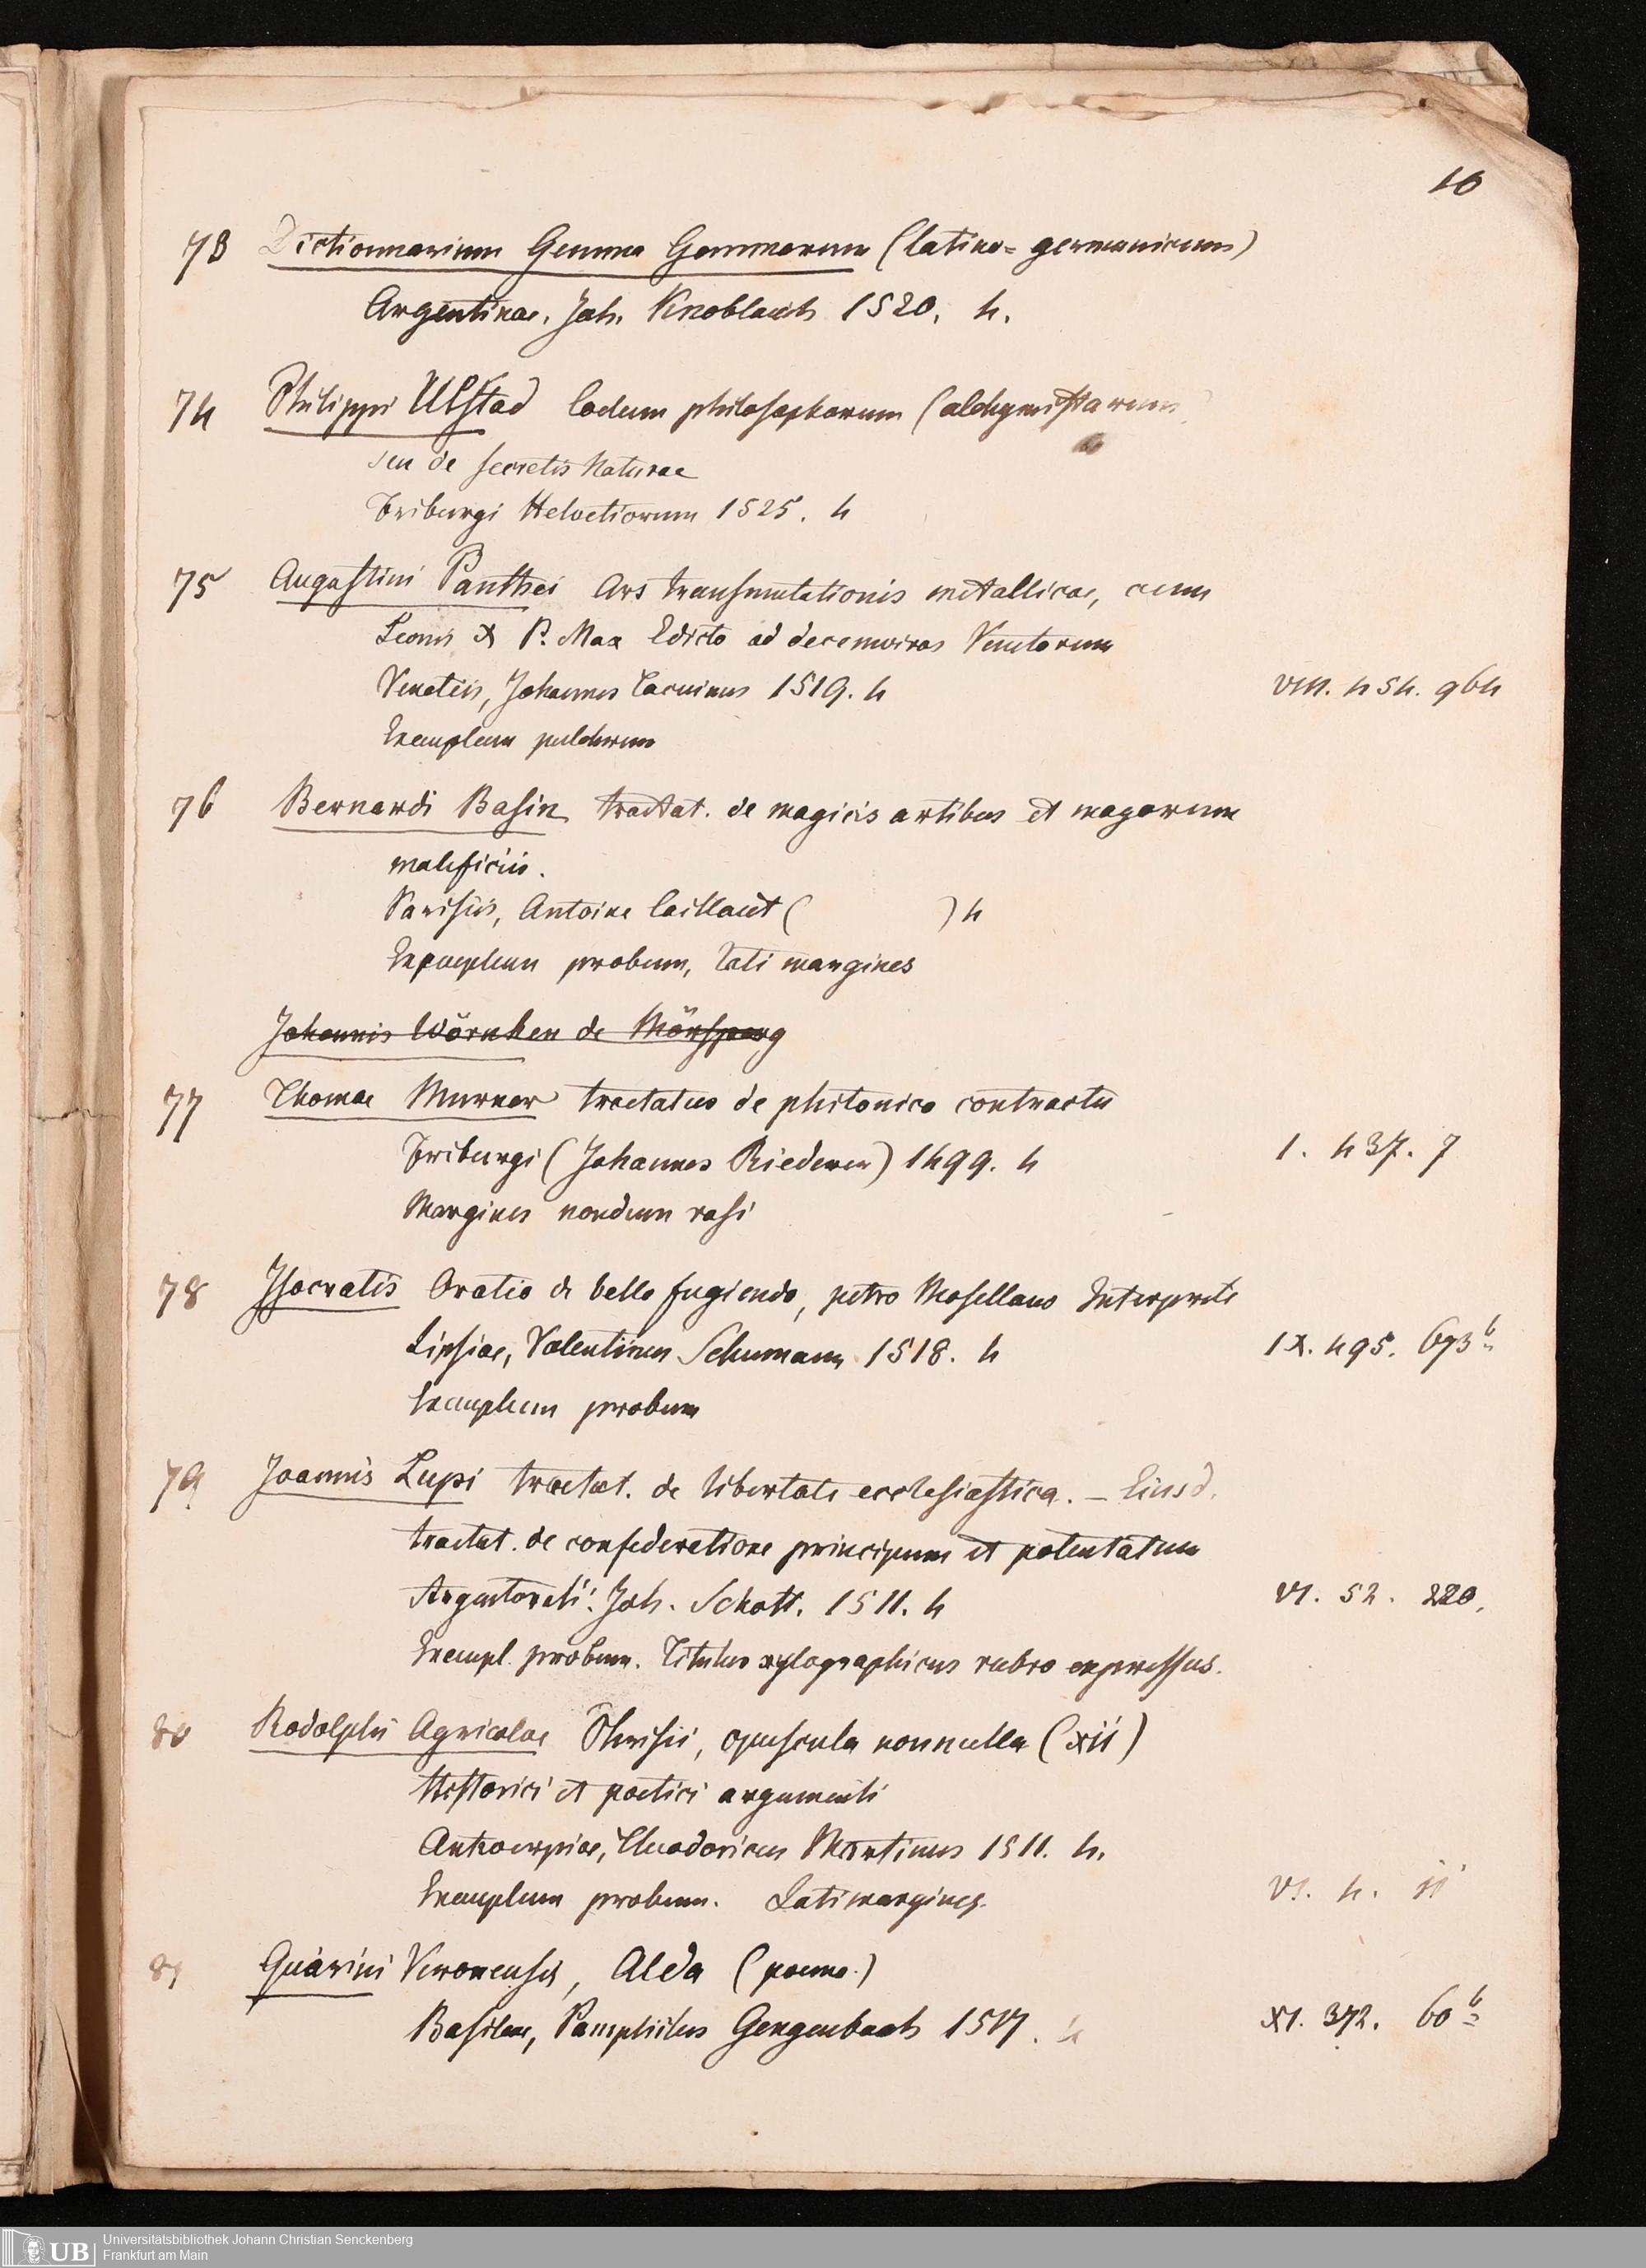 10
73 Dictionnarium Gemma Gemmarum (latino-germanicum)
Argentinae. Joh. Knoblauch 1520. 4.
74 Philippi Ulstad Coelum philosophorum (alchymistarum)
seu de secretis Naturae
Friburgi Helvetiorum 1525. 4
75 Augustini Panthei Ars transmutationis metallicae, cum
Leonis X P. Max Edicto ad decemviros Venetorum
Venetiis, Johannes Tacuinus 1519. 4 VIII. 454. 964
Exemplum pulchrum
76 Bernardi Basin tractat. de magicis artibus et magorum
maleficiis.
Parisiis, Antoine Caillaut ( ) 4
Exemplum probum, lati margines
Johannis Wörnhen de Mörsperg
77 Thomae Murner tractatus de phitonico contractu
Friburgi (Johannes Riederer) 1499. 4 I. 437. 7
Margines nondum rasi
78 Isocratis Oratio de bello fugiendo, petro Mosellano Interprete
Lipsiae, Valentinus Schumann 1518. 4 IX. 495. 693 b
Exemplum probum
79 Joannis Lupi tractat. de libertate ecclesiastica. — Eiusd.
tractat. de confederatione principum et potentatum
Argentorati: Joh. Schott. 1511. 4 VI. 52. 220.
Exempl. probum. Titulus xylographicus rubro expressus.
80 Rodolphi Agricolae Phrisii, opuscula nonnulla (xii)
Historici et poetici argumenti
Antwerpiae, Theodoricus Martinus 1511. 4.
Exemplum probum. Lati margines. VI. 4. ii
81 Guarini Veronensis, Alda (poema.)
Basileae, Pamphilus Gengenbach 1517. 4 XI. 372. 60 b
UB Universitätsbibliothek Johann Christian Senckenberg
Frankfurt am Main